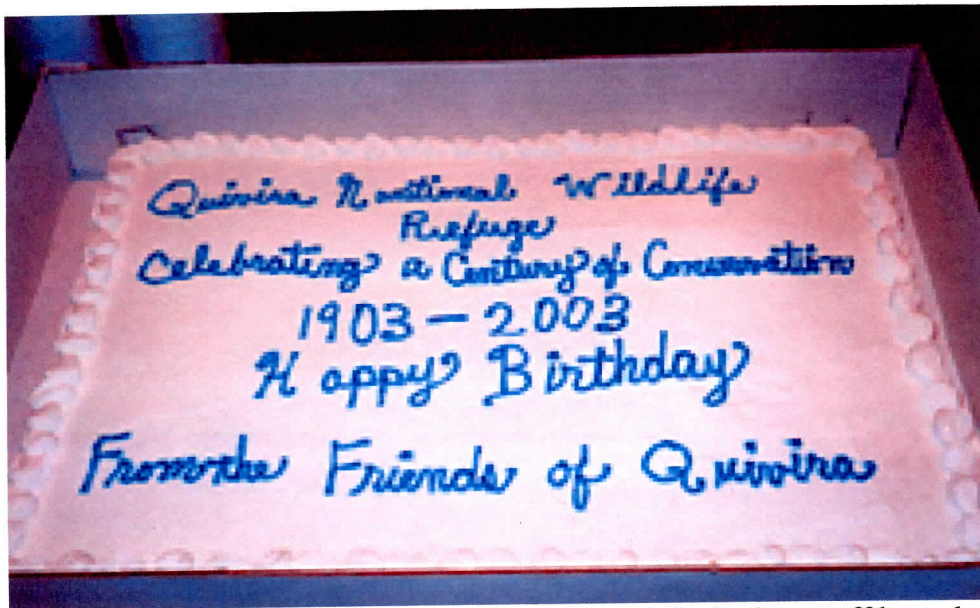 Quivira National Wildlife
Refuge
Celebrating a Century of Conservation
1903 – 2003
Happy Birthday
From the Friends of Quivira